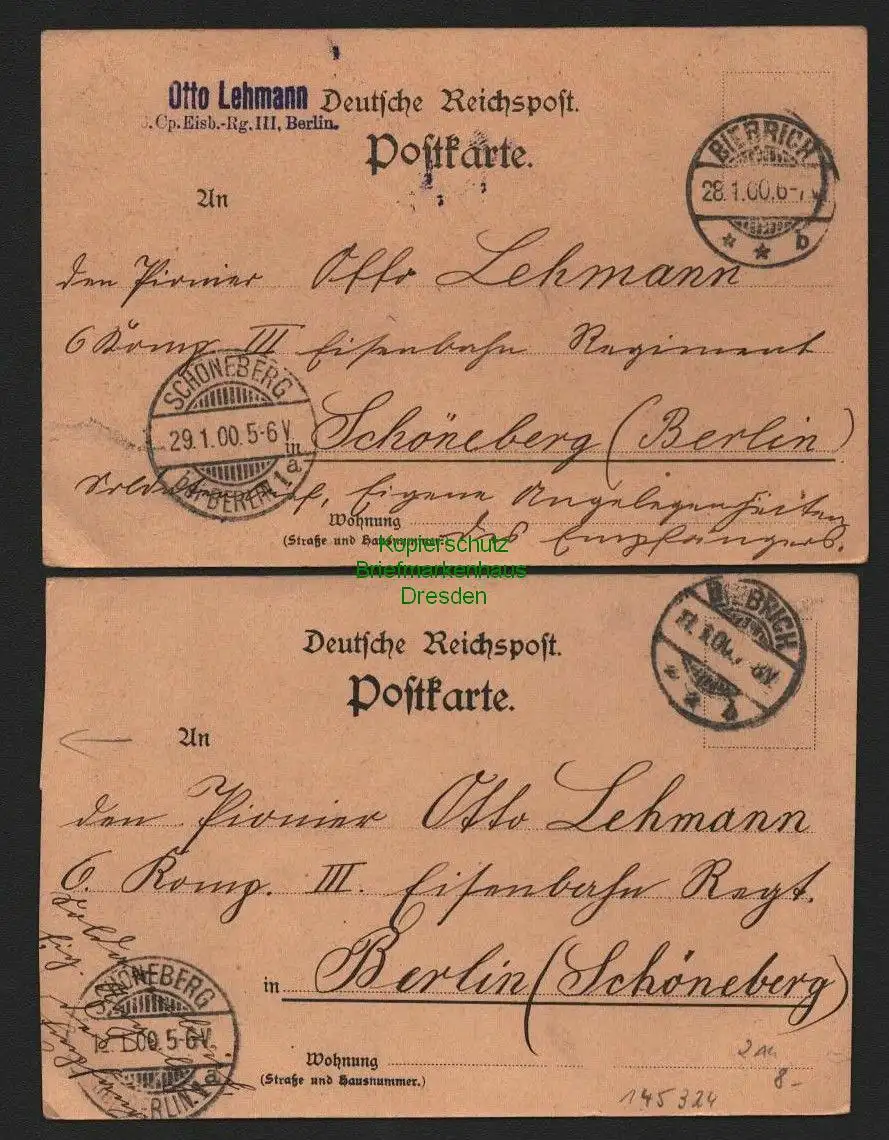 Otto Lehmann
Cp. Eisb.-Rg. III, Berlin.
Deutsche Reichspost.
Postkarte.
BIEBRICH
28.1.00. 6-7
* * b
An
den Pionier Otto Lehmann
6 Komp III Eisenbahn Regiment
SCHÖNEBERG
29.1.00. 5-6V.
BERLIN 1 a.
in Schöneberg (Berlin)
Eigene Angelegenheiten
Wohnung
des Empfängers.
(Straße und Hausnummer.)
Kopierschutz
Briefmarkenhaus
Dresden
BIEBRICH
* * b
Deutsche Reichspost.
Postkarte.
An
den Pionier Otto Lehmann
6. Komp. III. Eisenbahn Regt.
SCHÖNEBERG
1.00. 5-6V.
BERLIN. 1 a
in Berlin (Schöneberg)
Wohnung
(Straße und Hausnummer.)
8-
145324